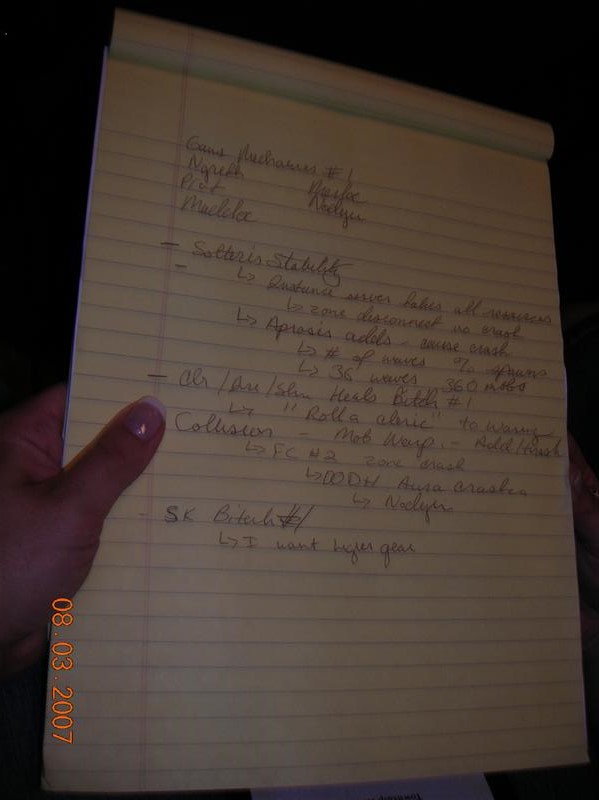 Game Mechanics #1
Ngreth
Prof
Maddoc Nodyin
- Solteris Stability
-
↳ Instance server takes all resources
↳ zone disconnect no crash
↳ Aprosis adds - cause crash
↳ # of waves % spawns
↳ 36 waves, 360 mobs
- Clr/Dru/Shm Heals Bitch #1
↳ "Roll a cleric" to
Collision - Mob Warp - Add/
↳ FC #2 zone crash
↳ DODH Aura crashes
↳ Nodyin
- SK Bitch #1
↳ I want higher gear
08.03.2007